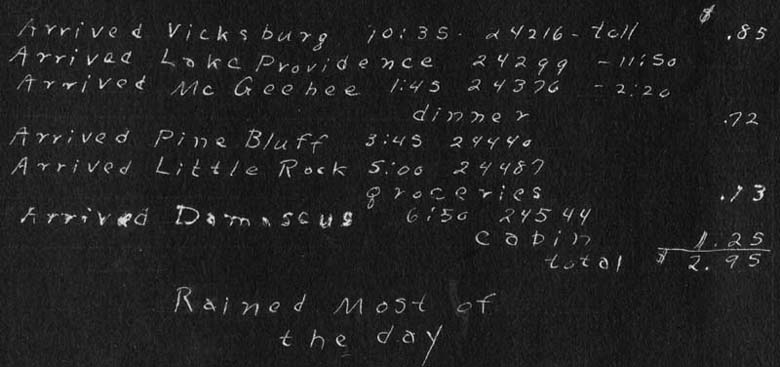 Arrived Vicksburg 10:35. 24216 - toll $ .85
Arrived Lake Providence 24299 - 11:50
Arrived Mc Geehee 1:45 24376 - 2:20
dinner .72
Arrived Pine Bluff 3:45 24440
Arrived Little Rock 5:00 24487
groceries .13
Arrived Damascus 6:50 24544
cabin 1.25
total $ 2.95
Rained most of
the day